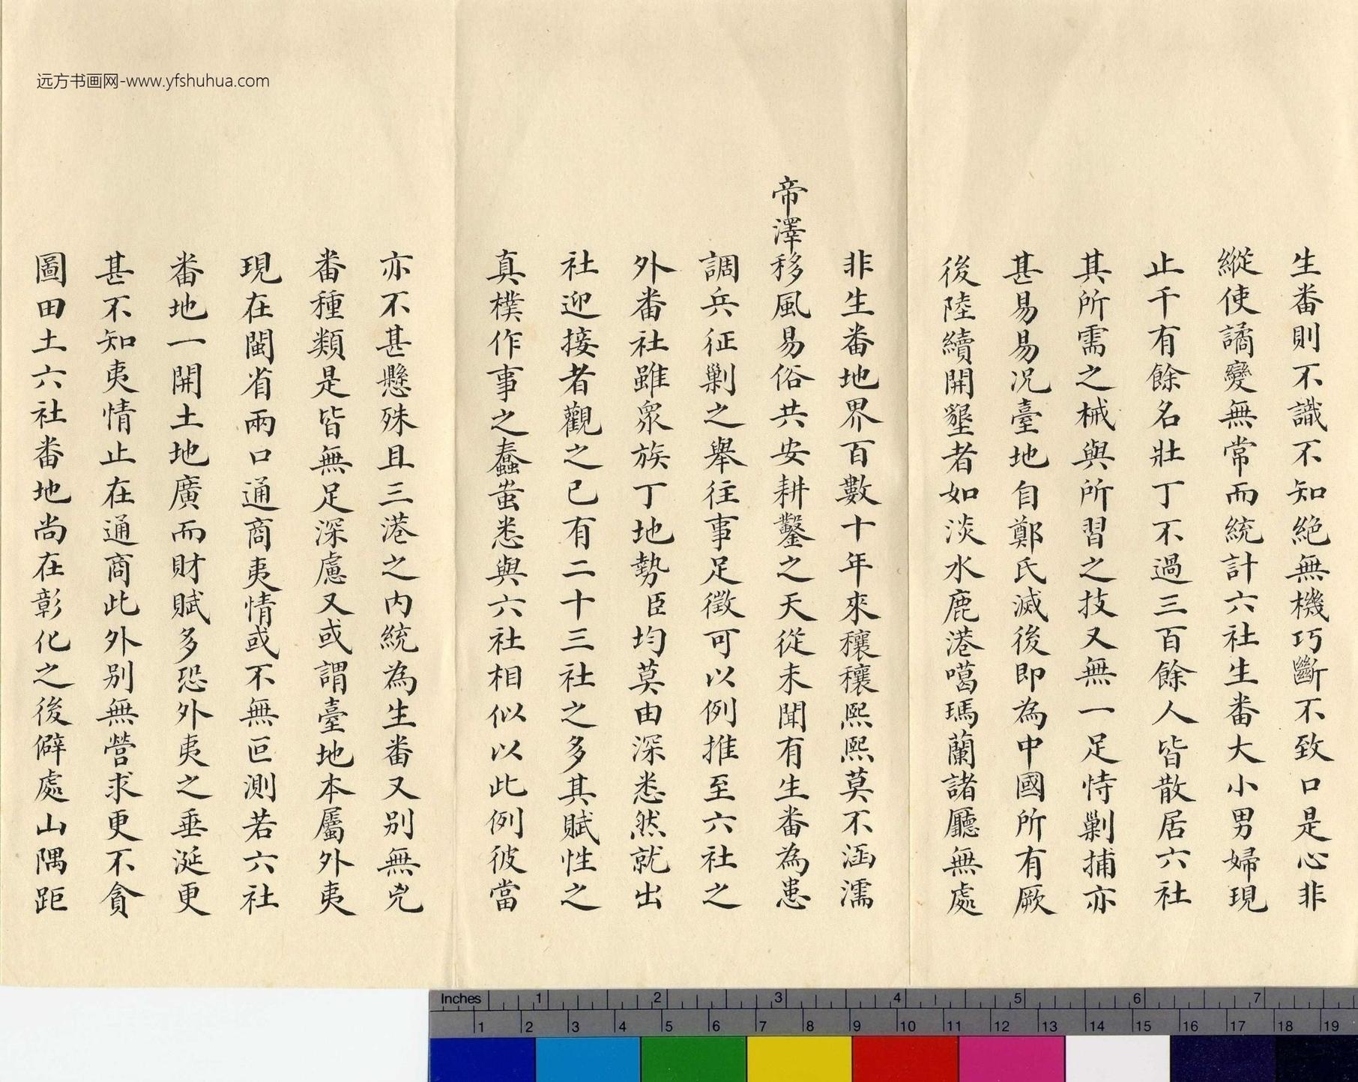 远方书画网-www.yfshuhua.com
生番則不識不知絶無機巧斷不致口是心非
縱使譎變無常而統計六社生番大小男婦現
止千有餘名壯丁不過三百餘人皆散居六社
其所需之械與所習之技又無一足恃剿捕亦
甚易易况臺地自鄭氏滅後即為中國所有厥
後陸續開墾者如淡水鹿港噶瑪蘭諸廳無處
非生番地界百數十年來穰穰熙熙莫不涵濡
帝澤移風易俗共安耕鑿之天從未聞有生番為患
調兵征剿之舉往事足徵可以例推至六社之
外番社雖衆族丁地勢臣均莫由深悉然就出
社迎接者觀之已有二十三社之多其賦性之
真樸作事之蠢蚩悉與六社相似以此例彼當
亦不甚懸殊且三港之内統為生番又别無兇
番種類是皆無足深慮又或謂臺地本屬外夷
現在閩省兩口通商夷情或不無叵測若六社
番地一開土地廣而財賦多恐外夷之垂涎更
甚不知夷情止在通商此外别無營求更不貪
圖田土六社番地尚在彰化之後僻處山隅距
Inches 1 2 3 4 5 6 7
1 2 3 4 5 6 7 8 9 10 11 12 13 14 15 16 17 18 19